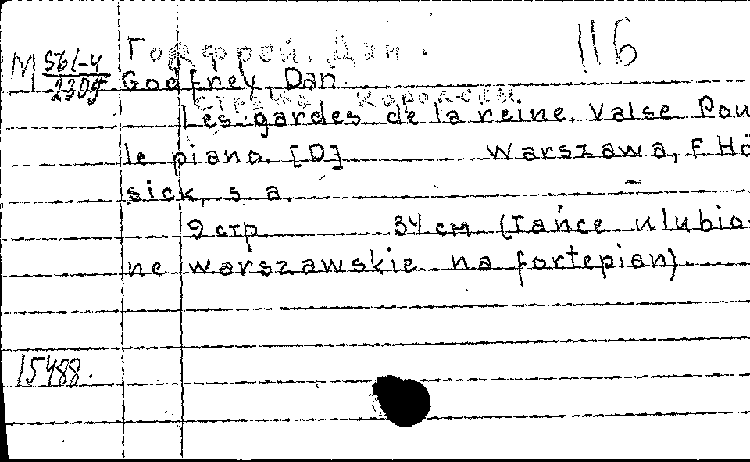 116
М 561-4
2309
Годфрей, Дан.
Godfrey, Dan.
Стража королевы.
Les gardes de la reine. Valse pou
le piano. [D] Warszawa, F. Hö
sick, s. a.
9 стр. 34 см (Tańce ulubio-
ne warszawskie na fortepian).
15488.